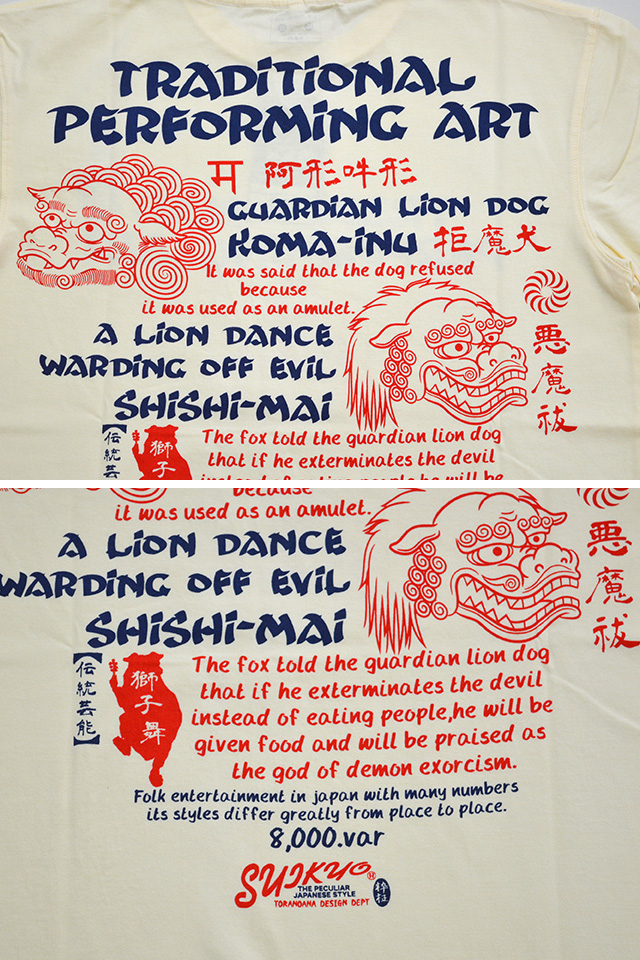 TRADITIONAL
PERFORMING ART
阿形吽形
GUARDIAN LION DOG
KOMA-INU 拒魔犬
It was said that the dog refused
because
it was used as an amulet.
A LION DANCE
WARDING OFF EVIL
SHISHI-MAI
悪魔祓
【伝統芸
獅子
The fox told the guardian lion dog
that if he exterminates the devil
instead of eating people,he will be
because
it was used as an amulet.
A LION DANCE
WARDING OFF EVIL
SHISHI-MAI
悪魔祓
【伝統芸能】
獅子舞
The fox told the guardian lion dog
that if he exterminates the devil
instead of eating people,he will be
given food and will be praised as
the god of demon exorcism.
Folk entertainment in japan with many numbers
its styles differ greatly from place to place.
8,000.var
SUIKYO
THE PECULIAR
JAPANESE STYLE
TORANOANA DESIGN DEPT